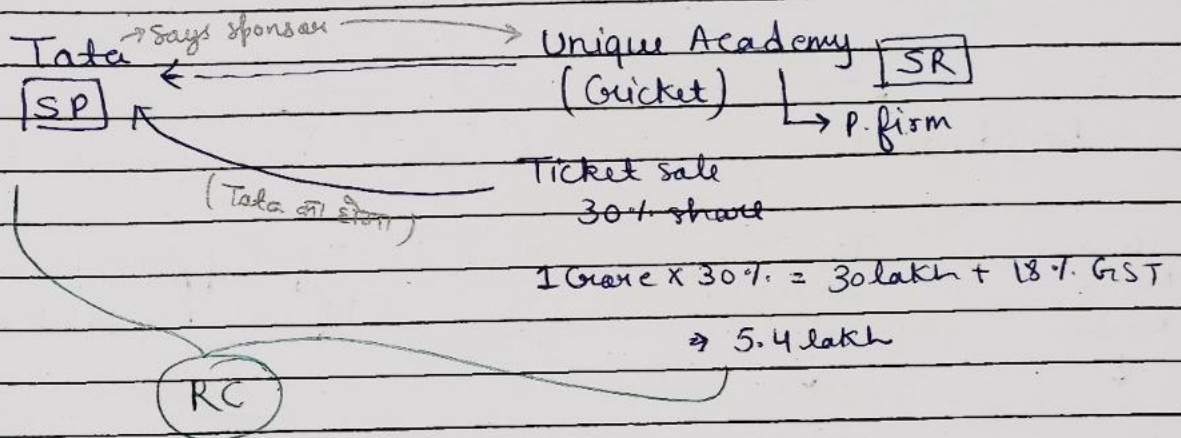 Tata → says sponsor → Unique Academy SR
SP (Cricket) → P. firm
Ticket sale
(Tata का होगा) 30% share
1 Crore x 30% = 30 lakh + 18% GST
⇒ 5.4 lakh
RC